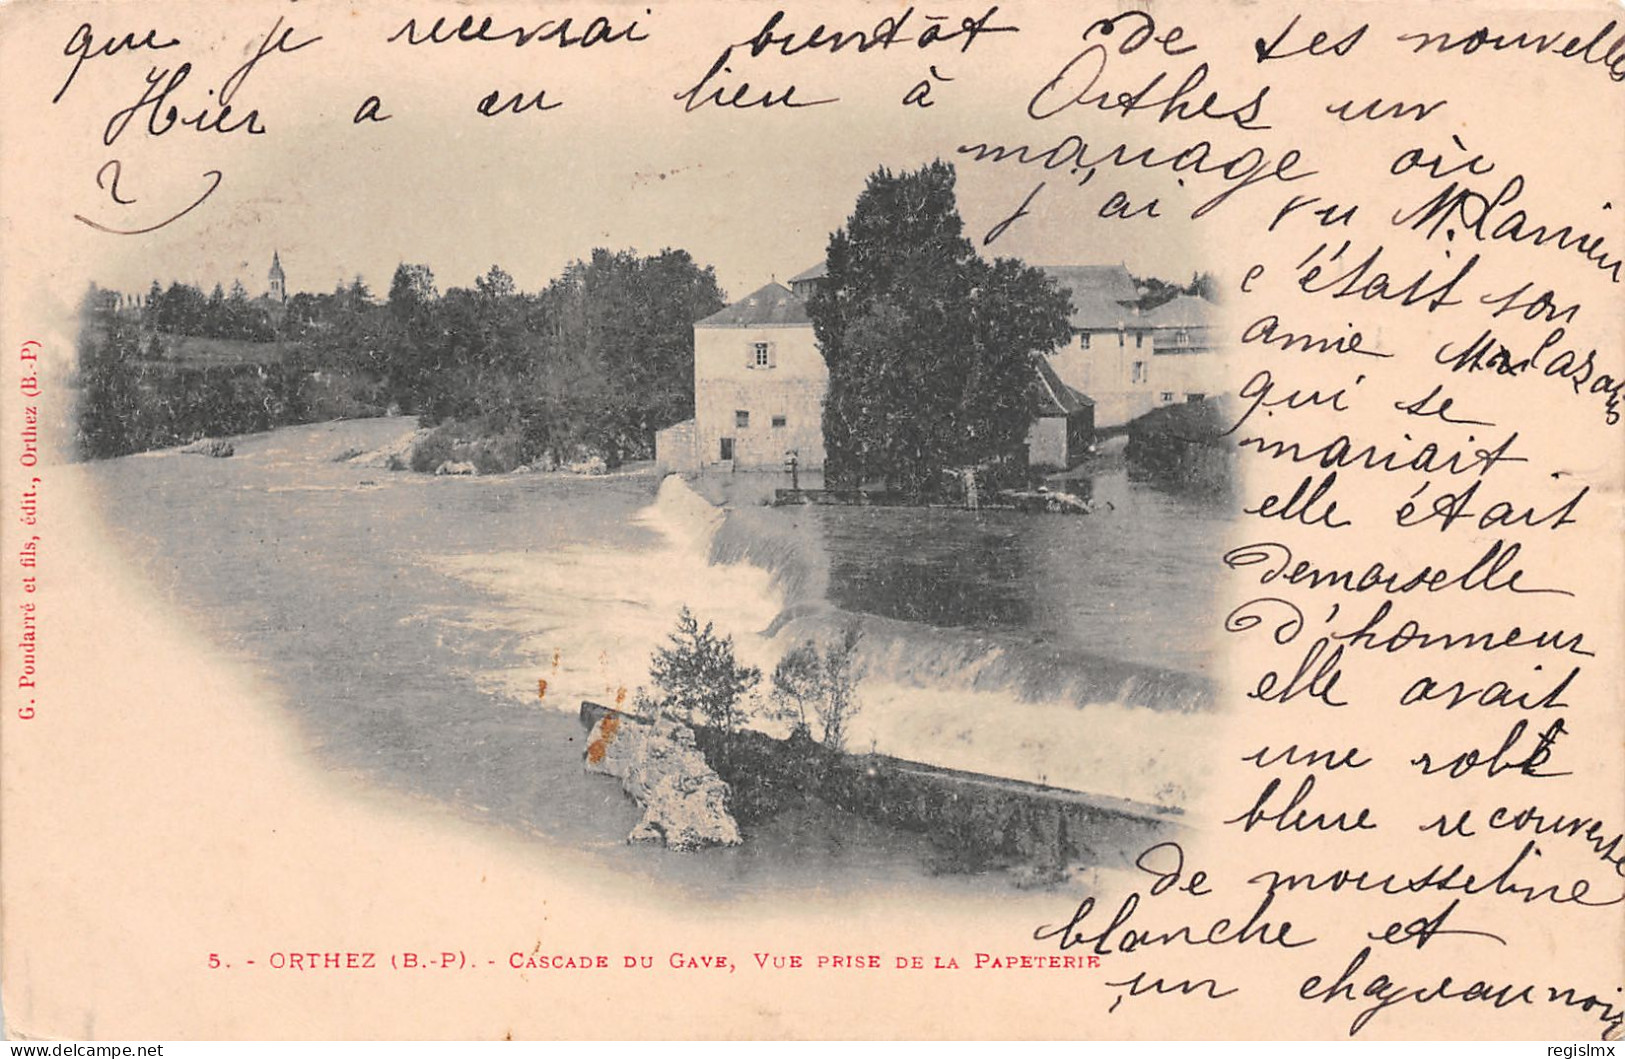 que je recevrai bientôt de tes nouvelles
Hier a eu lieu à Orthez un
mariage où
j'ai vu M. 
c'était son
amie
qui se
mariait
elle était
demoiselle
d'honneur
elle avait
une robe
bleue recouverte
de mousseline
blanche et
un
G. Pondarré et fils, édit., Orthez (B.-P)
5. - ORTHEZ (B.-P). - CASCADE DU GAVE, VUE PRISE DE LA PAPETERIE
regislmx